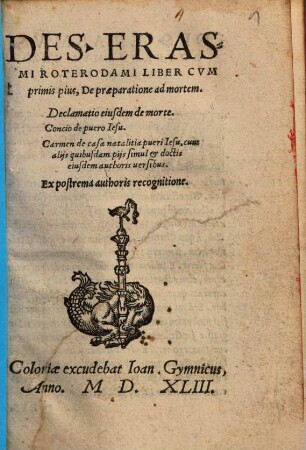 DES. ERAS-
MI ROTERODAMI LIBER CVM
primis pius, De præparatione ad mortem.
Declamatio eiusdem de morte.
Concio de puero Iesu.
Carmen de casa natalitia pueri Iesu, cum
alijs quibusdam pijs simul & doctis
eiusdem authoris uersibus.
Ex postrema authoris recognitione.
Coloniæ excudebat Ioan. Gymnicus,
Anno. M D. XLIII.